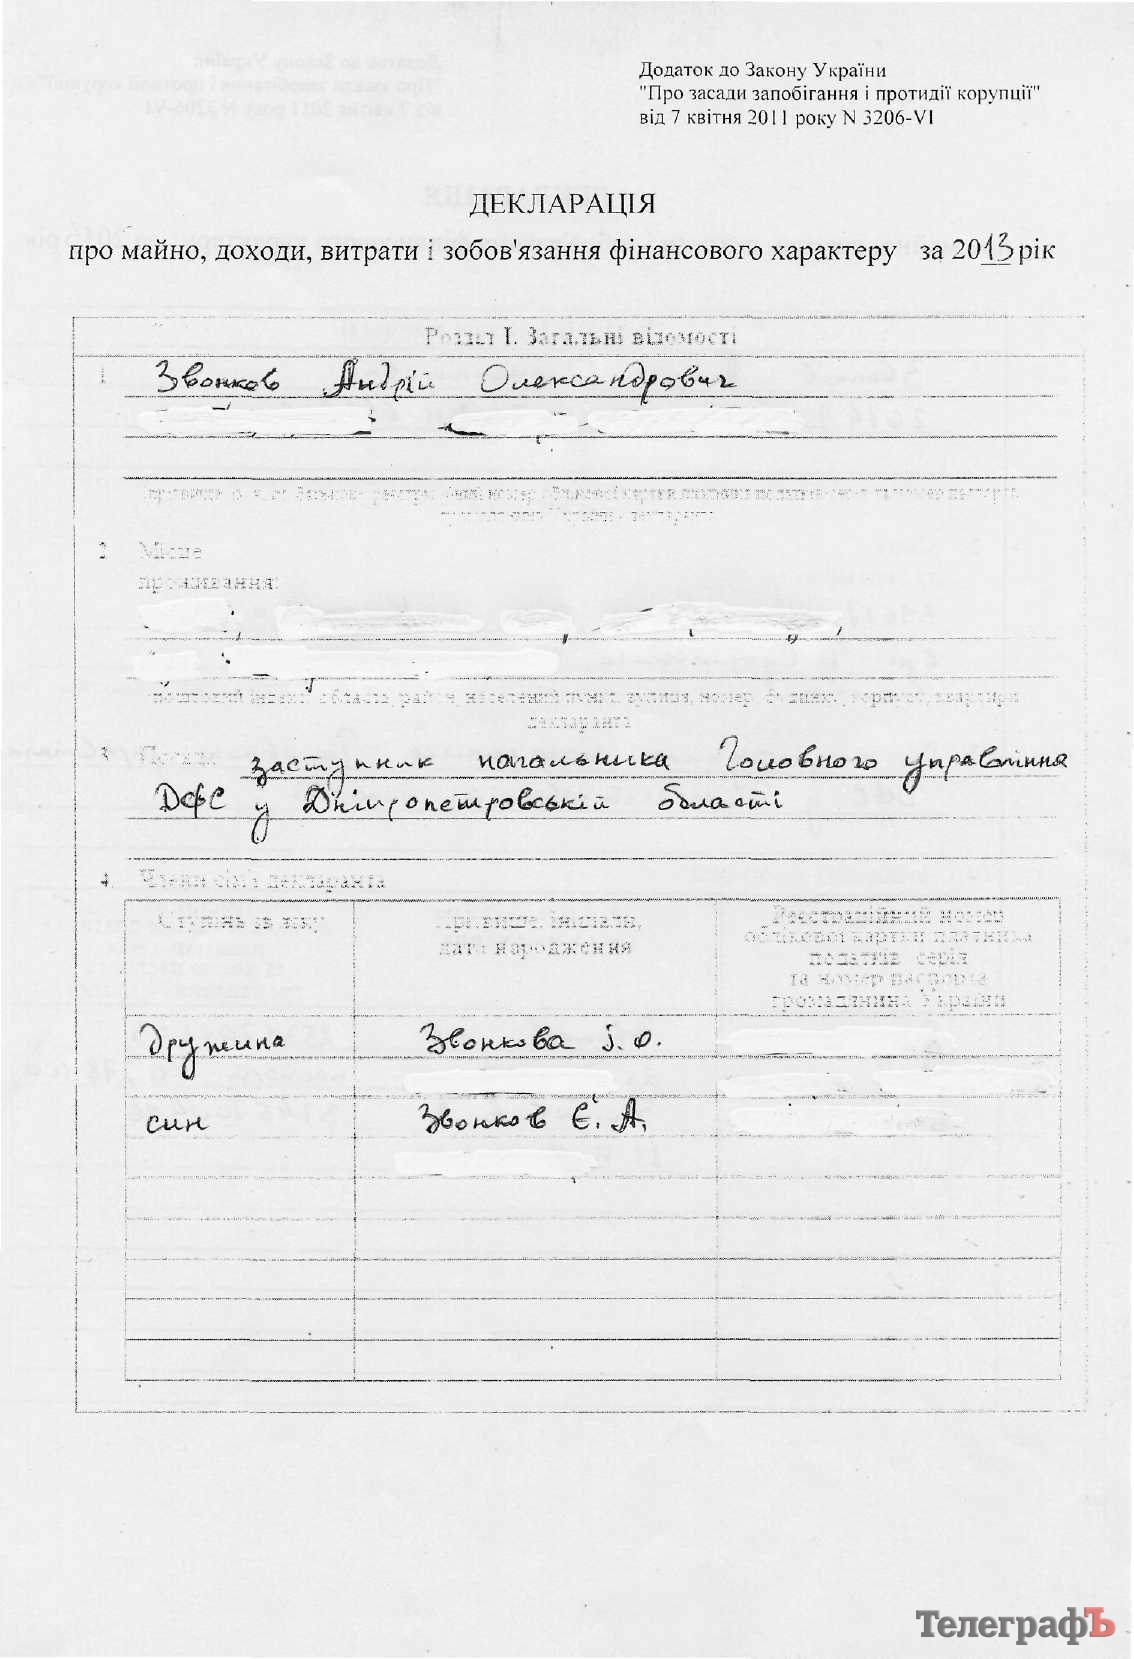 Додаток до Закону України
"Про засади запобігання і протидії корупції"
від 7 квітня 2011 року N 3206-VI
ДЕКЛАРАЦІЯ
про майно, доходи, витрати і зобов'язання фінансового характеру за 2013 рік
Розділ I. Загальні відомості
1. Звонков Андрій Олександрович
2. Місце
проживання:
поштовий індекс, область, район, населений пункт, вулиця, номер будинку, корпусу, квартири
декларанта
3. Посада заступник начальника Головного управління
ДФС у Дніпропетровській області
4. Члени сім'ї декларанта
Ступінь зв'язку
Прізвище, ініціали,
дата народження
Реєстраційний номер
облікової картки платника
податків серія
та номер паспорта
громадянина України
дружина Звонкова І.О.
син Звонков Є.А.
ТелеграфЪ